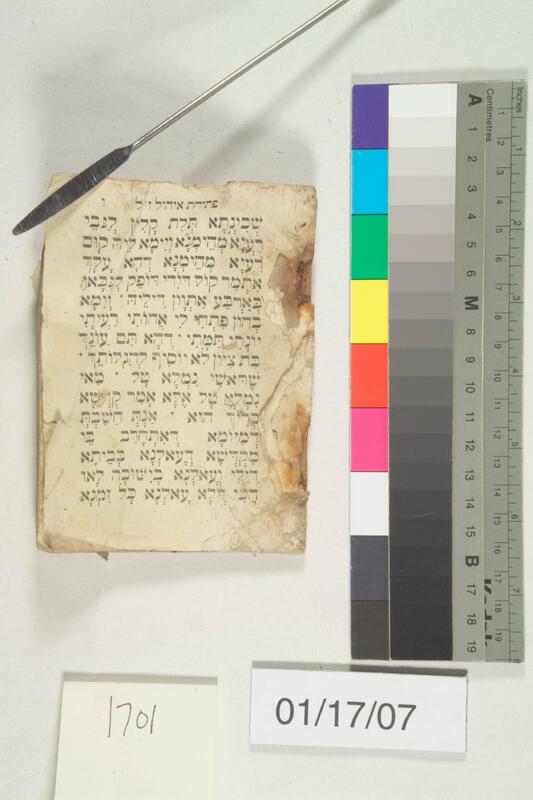 פתיחת אליהו ז״ל ו
שְׁכִינְתָּא תְּלַת קָלִין לְגַבֵּי
רַעְיָא מְהֵימְנָא וְיֵימָא לֵיהּ קוּם
רַעְיָא מְהֵימְנָא דְּהָא עֲלָךְ
אִתְּמַר קוֹל דּוֹדִי דוֹפֵק לְגַבָּאי
בְּאַרְבַּע אַתְוָון דִּילֵיהּ וְיֵימָא
בְּהוֹן פִּתְחִי לִי אֲחוֹתִי רַעְיָתִי
יוֹנָתִי תַמָּתִי דְּהָא תַּם עֲוֹנֵךְ
בַּת צִיּוֹן לֹא יוֹסִיף לְהַגְלוֹתֵךְ
שֶׁרֹאשִׁי נִמְלָא טָל מַאי
נִמְלָא טָל אֶלָּא אָמַר קֻדְשָׁא
בְּרִיךְ הוּא אַנְתְּ חֲשַׁבְתְּ
דְּמִיוֹמָא דְּאִתְחָרַב בֵּי
מַקְדְּשָׁא דְּעָאלְנָא בְּבֵיתָא
דִילִי וְעָאלְנָא בְיִשּׁוּבָא לָאו
הָכִי דְּלָא עָאלְנָא כָּל זִמְנָא
Inches
Centimetres
1 2 3 4 5 6 7 8
A 1 2 3 4 5 6 M 8 9 10 11 12 13 14 15 B 17 18 19
1 2 3 4 5 6 7 8 9 10 11 12 13 14 15 16 17 18 19
Kodak
01/17/07
1701